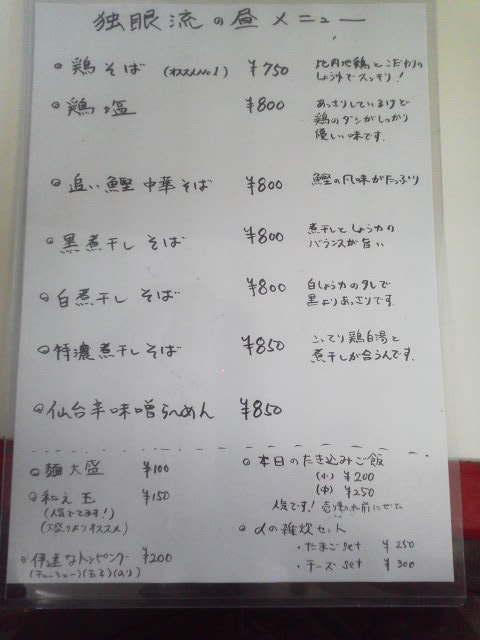 独眼流の昼メニュー
鶏そば (オススメNo1) ¥750 比内地鶏とこだわりの
しょうゆでスッキリ!
鶏塩 ¥800 あっさりしているけど
鶏のダシがしっかり
優しい味です。
追い鰹中華そば ¥800 鰹の風味がたっぷり
黒煮干しそば ¥800 煮干しとしょうゆの
バランスが旨い
白煮干しそば ¥800 白しょうゆのタレで
黒よりあっさりです。
特濃煮干しそば ¥850 こってり鶏白湯と
煮干しが合うんです。
仙台辛味噌らーめん ¥850
麺大盛 ¥100
和え玉 ¥150
(人気でてます!)
(大盛りよりオススメ)
伊達なトッピング ¥200
(チャーシュー)(玉子)(のり)
本日のたき込みご飯
(小) ¥200
(中) ¥250
人気です! 売り切れ前にぜひ
〆の雑炊セット
・たまごset ¥250
・チーズset ¥300